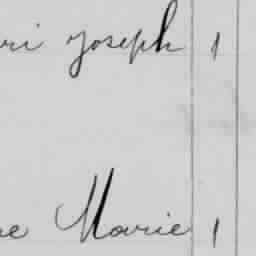 ri Joseph 1
e Marie 1